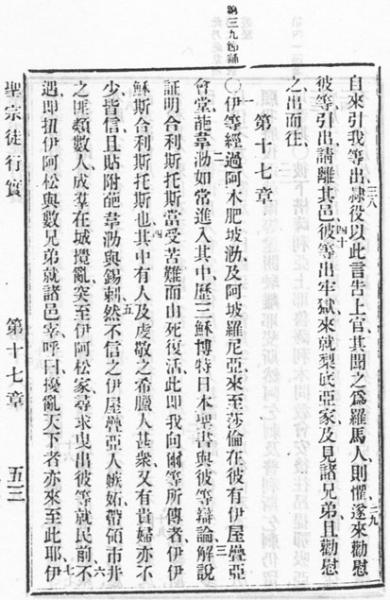 第三九節疎
自來引我等出隸役以此言告上官其聞之爲羅馬人則懼遂來勸慰
彼等引出請離其邑彼等出牢獄來就梨底亞家及見諸兄弟且勸慰
之出而往
第十七章
○伊等經過阿木肥坡泐及阿坡羅尼亞來至莎倫在彼有伊屋疊亞
會堂葩韋泐如常進入其中歷三穌博特日本聖書與彼等辯論解說
証明合利斯托斯當受苦難而由死復活此即我向爾等所傳者伊伊
穌斯合利斯托斯也其中有人及虔敬之希臘人甚衆又有貴婦亦不
少皆信且貼附葩韋泐與錫剌然不信之伊屋疊亞人嫉妬帶領市井
之匪類數人成羣在城擾亂突至伊阿松家尋求曳出彼等就民前不
遇即扭伊阿松與數兄弟就諸邑宰呼曰擾亂天下者亦來至此耶伊
聖宗徒行實
第十七章
五三
三八
三九
四十
一
二
三
四
五
六
七